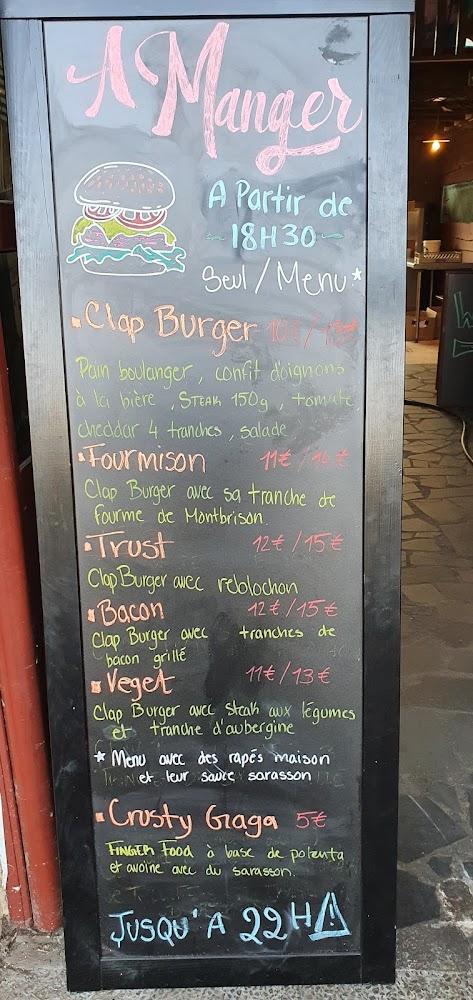 A Manger
A Partir de
18H30
Seul / Menu*
Clap Burger 10€ / 13€
Pain boulanger, confit d'oignons
à la bière, STEAK 150g, tomate
cheddar 4 tranches, salade
Fourmison 11€ / 14€
Clap Burger avec sa tranche de
fourme de Montbrison.
Trust 12€ / 15€
Clap Burger avec reblochon
Bacon 12€ / 15€
Clap Burger avec tranches de
bacon grillé
Veget 11€ / 13€
Clap Burger avec steak aux légumes
et tranche d'aubergine
* Menu avec des rapés maison
et leur sauce sarasson
Crusty Gaga 5€
FINGER FOOD à base de polenta
et avoine avec du sarasson.
JUSQU'A 22H